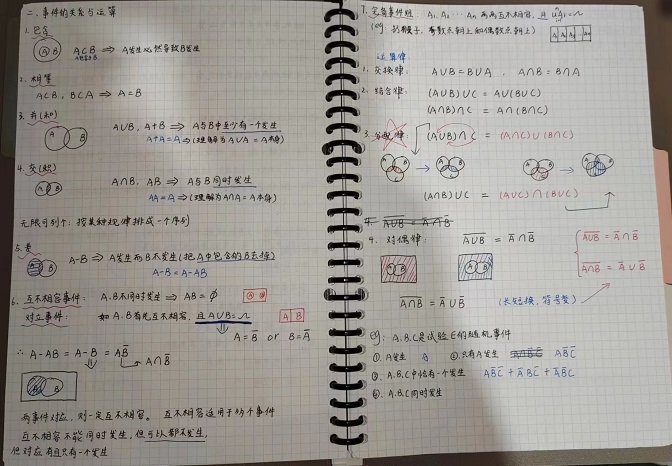 二、事件的关系与运算
1. 包含
A B
A⊂B ⟹ A发生必然导致B发生
2. 相等
A⊂B, B⊂A ⟹ A=B
3. 并(和)
A B
A∪B, A+B ⟹ A与B中至少有一个发生
A+A=A ⟹ (理解为A∪A=A本身)
4. 交(积)
A B
A∩B, AB ⟹ A与B同时发生
AA=A ⟹ (理解为A∩A=A本身)
无限可列个: 按某种规律排成一个序列
5. 差
A B
A-B ⟹ A发生而B不发生(把A中包含的B去掉)
A-B=A-AB
6. 互不相容事件: A.B不同时发生 ⟹ AB=∅
对立事件: 如A.B首先互不相容, 且A∪B=Ω
A B
A=B̅ or B=A̅
∴ A-AB=A-B=AB̅
A∩B̅
两事件对立, 则一定互不相容。 互不相容适用于多个事件
互不相容不能同时发生, 但可以都不发生,
但对立有且只有一个发生
7. 完备事件组 A₁, A₂ ⋯ Aₙ 两两互不相容, 且
(eg: 掷骰子, 奇数点朝上和偶数点朝上)
A₁ A₂ A₃
运算律
1. 交换律: A∪B=B∪A , A∩B=B∩A
2. 结合律: (A∪B)∪C = A∪(B∪C)
(A∩B)∩C = A∩(B∩C)
3. 分配律 (A∪B)∩C = (A∩C)∪(B∩C)
(A∩B)∪C = (A∪C)∩(B∪C)
4. 对偶律: A̅∪̅B̅ = A̅∩B̅
A̅∪̅B̅ = A̅∩B̅
A̅∩̅B̅ = A̅∪B̅
A̅∩̅B̅ = A̅∪B̅ (长短换, 符号变)
Eg: A.B.C是试验E的随机事件
①. A发生 ②. 只有A发生 AB̅C̅
③. A.B.C中恰有一个发生 AB̅C̅+A̅BC̅+A̅B̅C
A.B.C同时发生